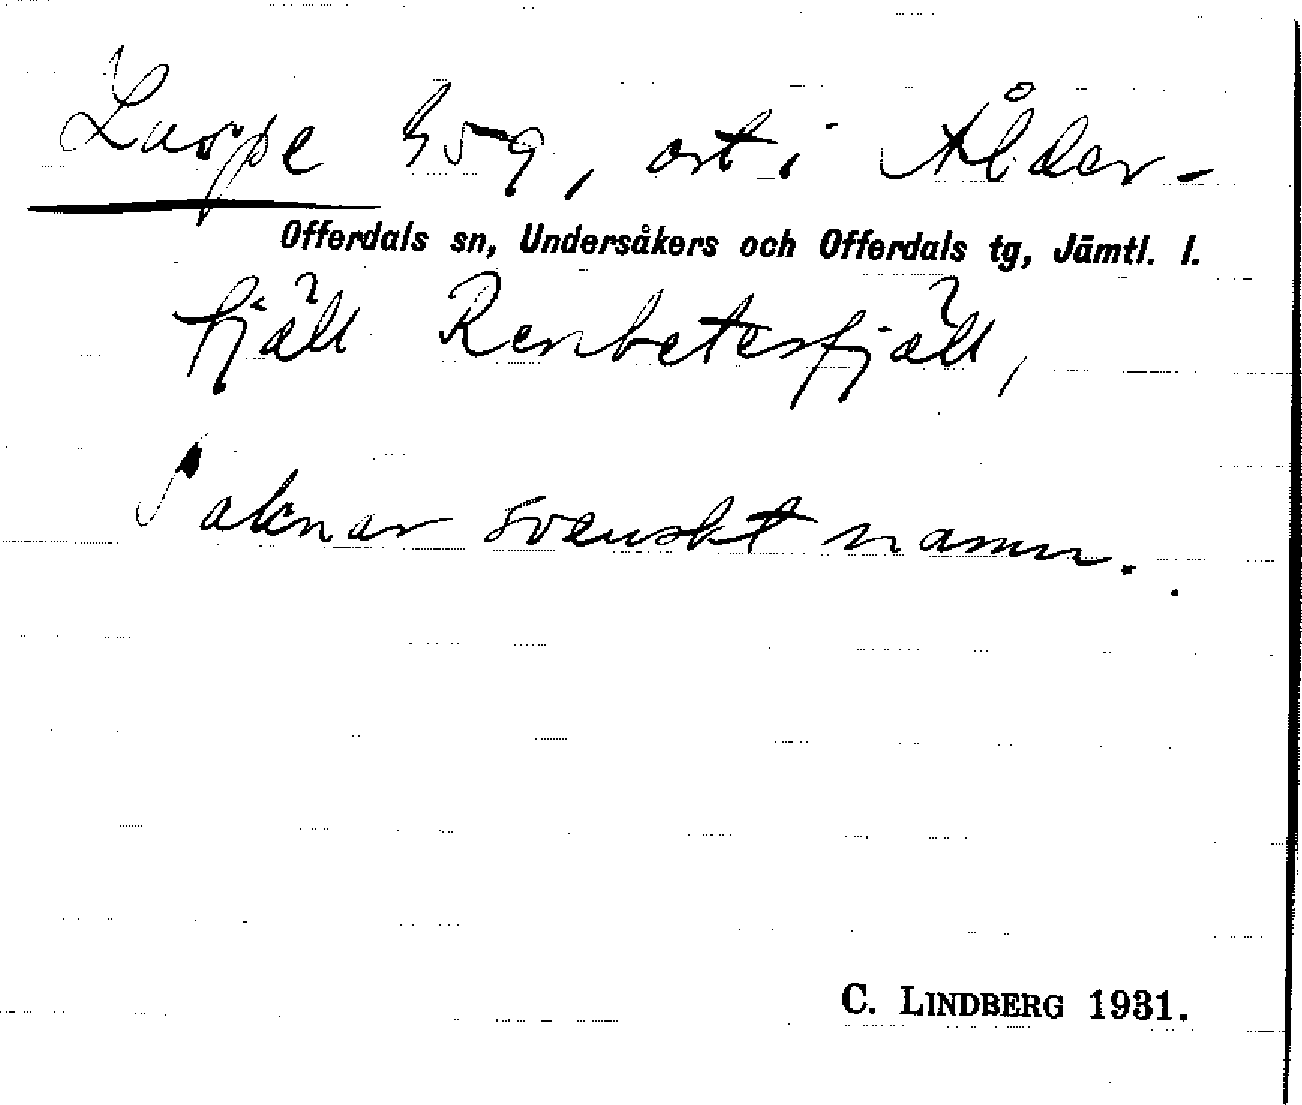 Luspe 359, ort i Ålder-
Offerdals sn, Undersåkers och Offerdals tg, Jämtl. l.
fjäll Renbetesfjäll,
Saknar svenskt namn.
C. LINDBERG 1931.